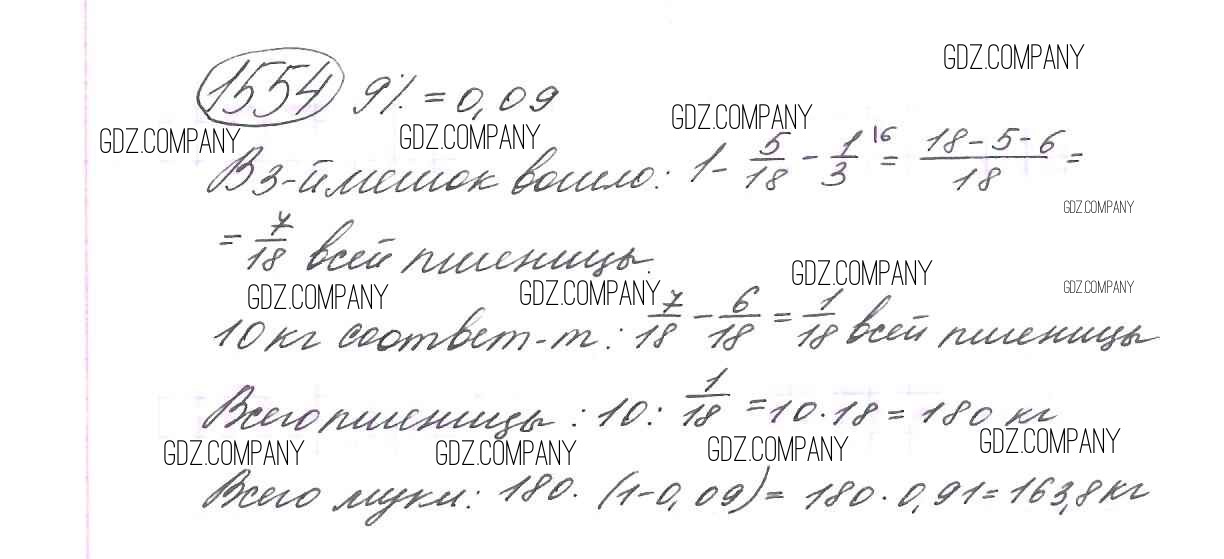 GDZ.COMPANY
1554 9% = 0,09
GDZ.COMPANY GDZ.COMPANY GDZ.COMPANY
В 3-й мешок вошло: 1 - 5/18 - 1/3 \6 = (18-5-6)/18 =
GDZ.COMPANY
= 7/18 всей пшеницы.
GDZ.COMPANY GDZ.COMPANY GDZ.COMPANY GDZ.COMPANY
10 кг соответ-т: 7/18 - 6/18 = 1/18 всей пшеницы
Всего пшеницы: 10 : 1/18 = 10·18 = 180 кг
GDZ.COMPANY GDZ.COMPANY GDZ.COMPANY GDZ.COMPANY
Всего муки: 180·(1-0,09) = 180·0,91 = 163,8 кг